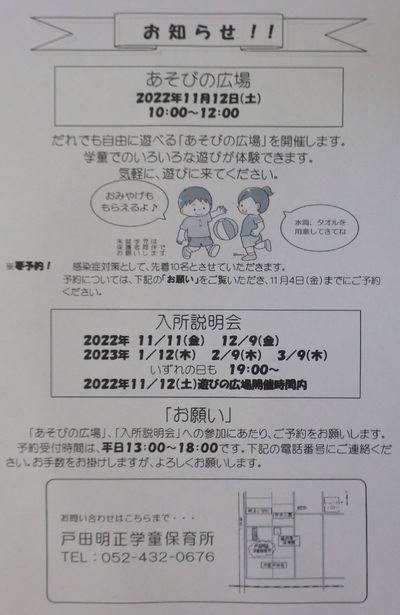 お知らせ!!
あそびの広場
2022年11月12日(土)
10:00～12:00
だれでも自由に遊べる「あそびの広場」を開催します。
学童でのいろいろな遊びが体験できます。
気軽に、遊びに来てください。
おみやげも
もらえるよ♪
水筒、タオルを
用意してきてね
未就学児は
保護者同伴で
お願いします
※要予約! 感染症対策として、先着10名とさせていただきます。
予約については、下記の「お願い」をご覧いただき、11月4日(金)までにご予約
ください。
入所説明会
2022年 11/11(金) 12/9(金)
2023年 1/12(木) 2/9(木) 3/9(木)
いずれの日も 19:00～
2022年11/12(土)遊びの広場開催時間内
「お願い」
「あそびの広場」、「入所説明会」への参加にあたり、ご予約をお願いします。
予約受付時間は、平日13:00～18:00です。下記の電話番号にご連絡くだ
さい。お手数をお掛けしますが、よろしくお願いします。
お問い合わせはこちらまで・・・
戸田明正学童保育所
TEL:052-432-0676